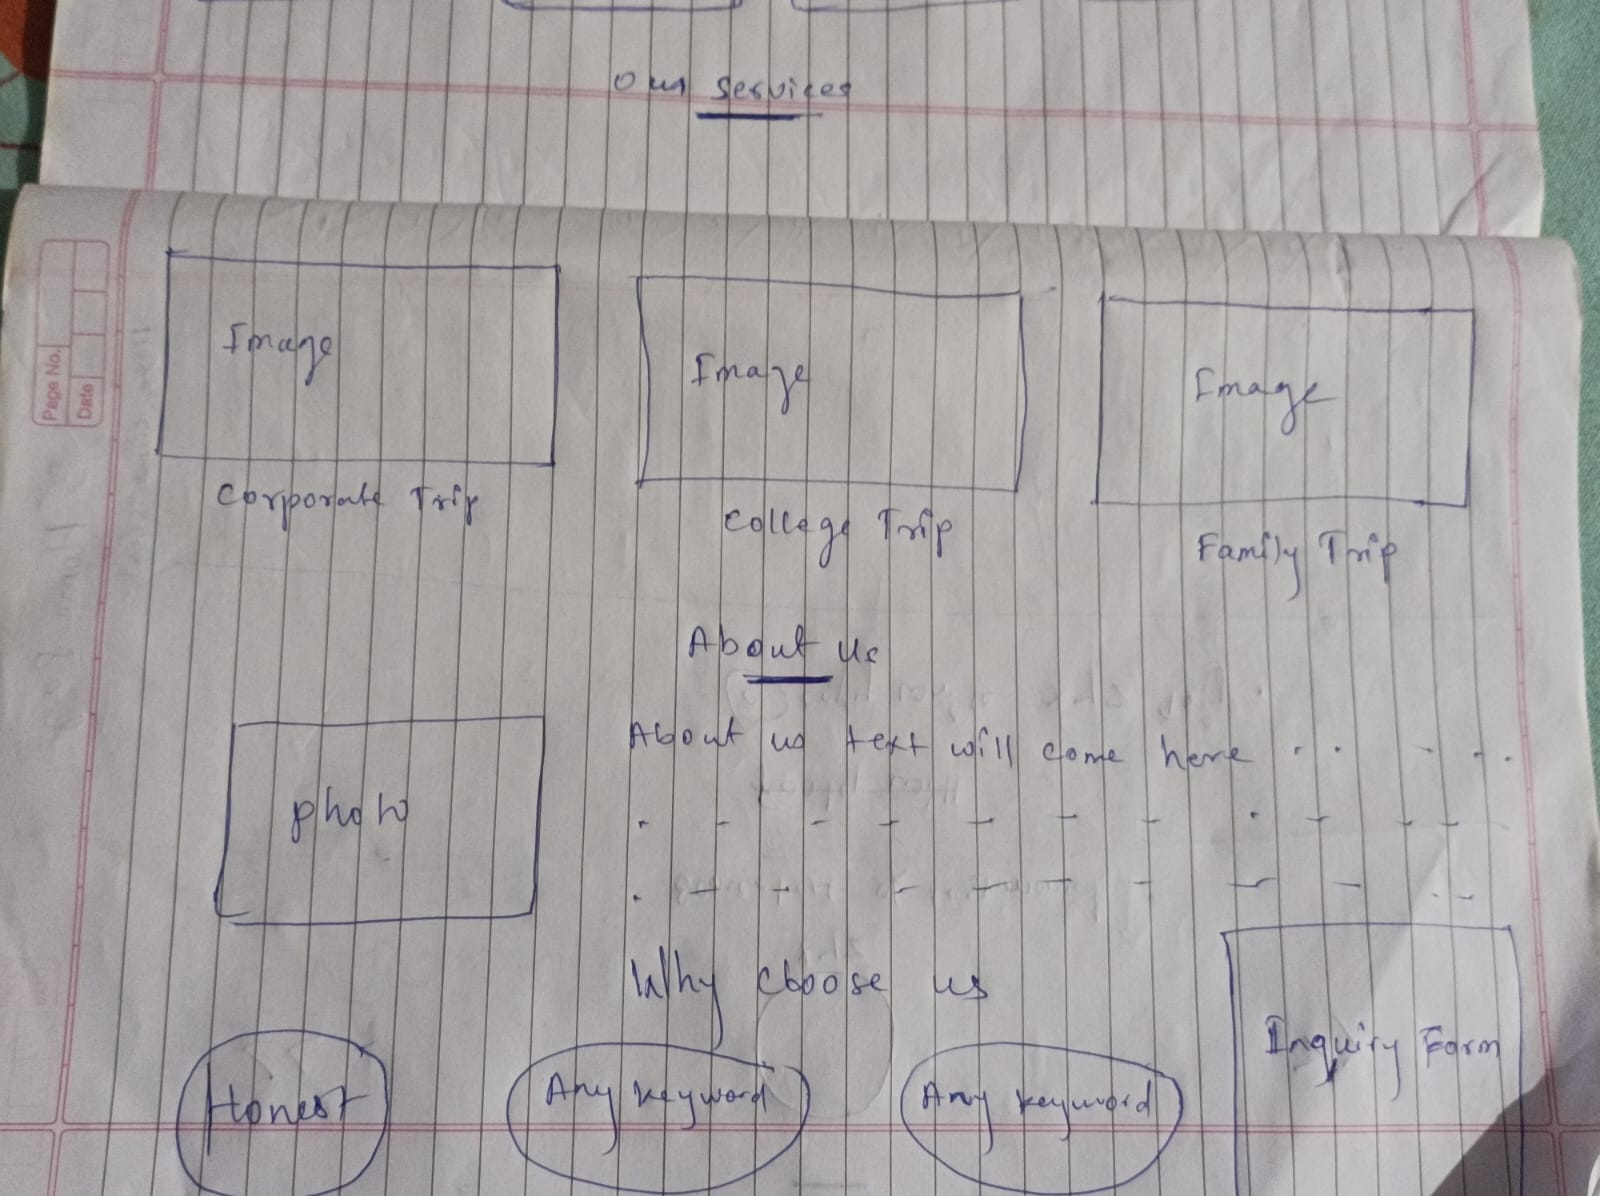 Our Services
Page No.
Date
Image
Image
Image
Corporate Trip
College Trip
Family Trip
About Us
Photo
About us text will come here
Why choose us
Inquiry Form
Honest
Any keyword
Any keyword